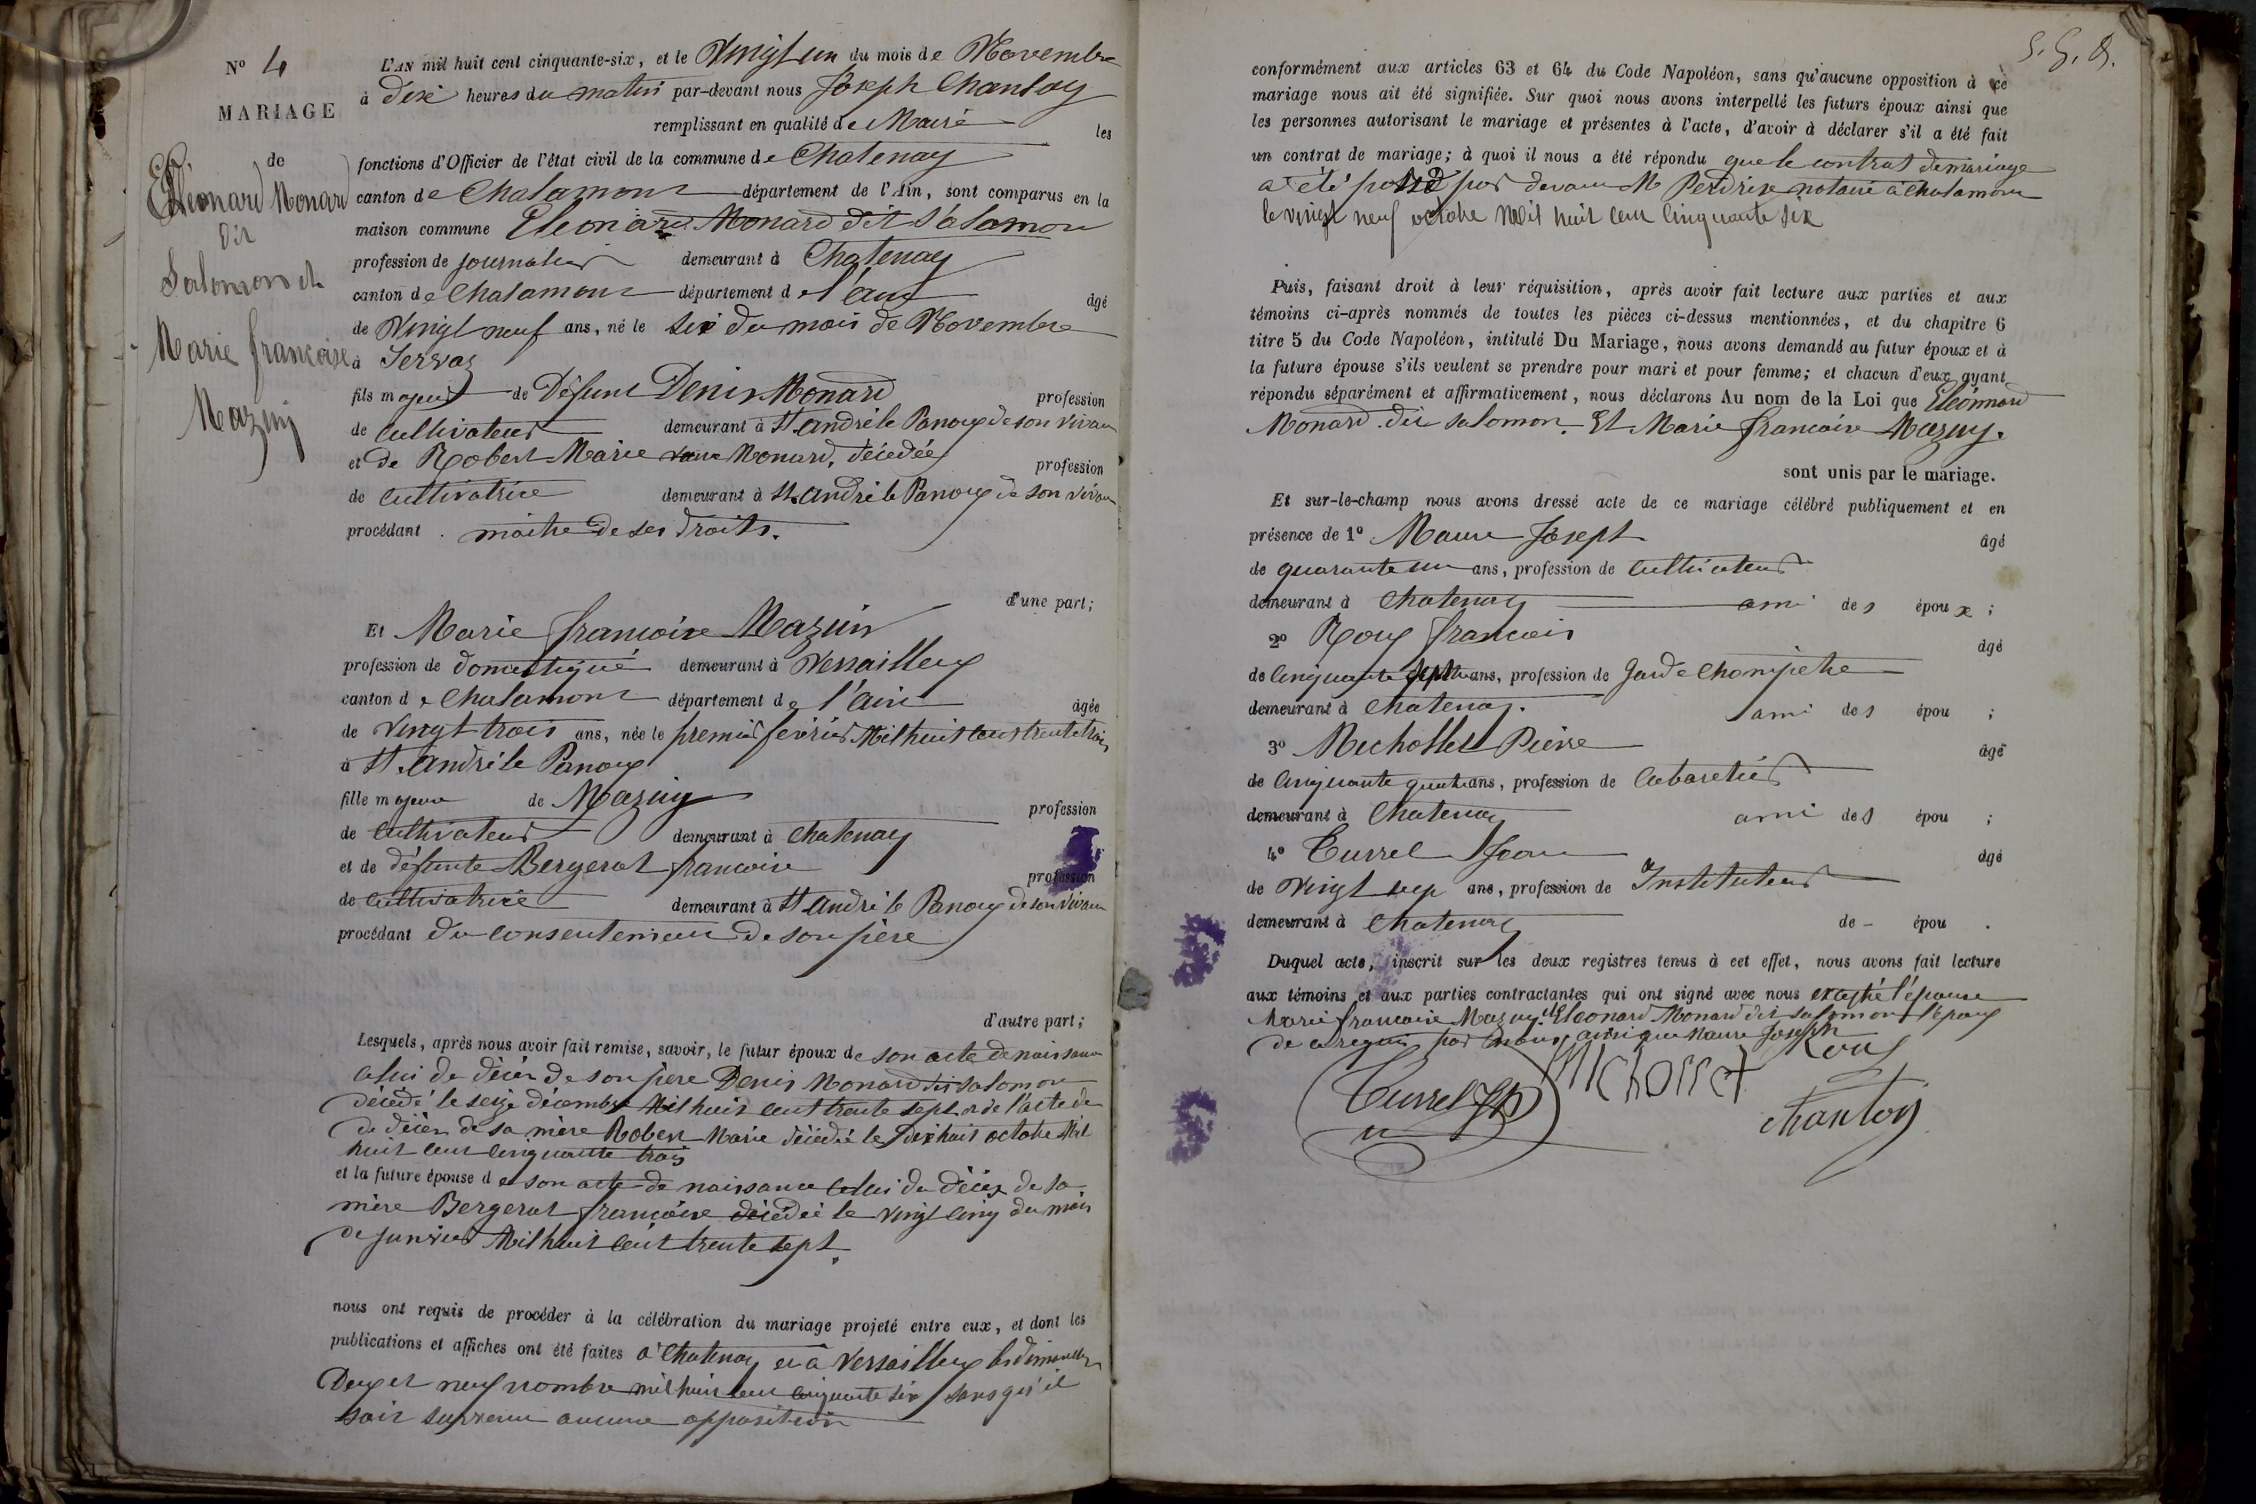 N° 4
MARIAGE
de
Eléonard Monard
dit
Salomon et
Marie françoise
Mazuy
L'AN mil huit cent cinquante-six, et le Vingt un du mois de Novembre
à dix heures du matin par-devant nous Joseph Chanton
remplissant en qualité de Maire les
fonctions d'Officier de l'état civil de la commune de Chatenay
canton de Chalamont département de l'Ain, sont comparus en la
maison commune Eléonard Monard dit Salomon
profession de journalier demeurant à Chatenay
canton de Chalamont département de l'ain âgé
de Vingt neuf ans, né le six du mois de Novembre
à Servas
fils majeur de Défunt Denis Monard profession
de cultivateur demeurant à St. andré le Panoux de son vivant
et de Robert Marie Monard, décedée profession
de cultivatrice demeurant à St. andré le Panoux de son vivant
procédant maitre de ses droits.
d'une part;
Et Marie françoise Mazuir
profession de domestique demeurant à Versailleux
canton de Chalamont département de l'ain âgée
de vingt trois ans, née le premier février Mil huit cent trente trois
à St. andré le Panoux
fille majeure de Mazuy profession
de cultivateur demeurant à Chatenay
et de défunte Bergerot francoise profession
de cultivatrice demeurant à St andré le Panoux de son vivant
procédant du consentement de son père
d'autre part;
Lesquels, après nous avoir fait remise, savoir, le futur époux de son acte de naissance
celui de décès de son père Denis Monard dit salomon
décédé le seize décembre Mil huit cent trente sept et de l'acte de
de décès de sa mère Robert Marie décédée le dix huit octobre Mil
huit cent cinquante trois
et la future épouse de son acte de naissance celui du décès de sa
mère Bergerot françoise décédée le vingt cinq du mois
de janvier Mil huit cent trente sept.
nous ont requis de procéder à la célébration du mariage projeté entre eux, et dont les
publications et affiches ont été faites à Chatenay et à Versailleux les dimanches
Deux et neuf novembre mil huit cent cinquante six sans qu'il
soit survenu aucune opposition
conformément aux articles 63 et 64 du Code Napoléon, sans qu'aucune opposition à ce
mariage nous ait été signifiée. Sur quoi nous avons interpellé les futurs époux ainsi que
les personnes autorisant le mariage et présentes à l'acte, d'avoir à déclarer s'il a été fait
un contrat de mariage; à quoi il nous a été répondu que le contrat de mariage
a été passé par devant M Perdrix notaire à Chalamont
le vingt neuf octobre Mil huit cent cinquante six
Puis, faisant droit à leur réquisition, après avoir fait lecture aux parties et aux
témoins ci-après nommés de toutes les pièces ci-dessus mentionnées, et du chapitre 6
titre 5 du Code Napoléon, intitulé Du Mariage, nous avons demandé au futur époux et à
la future épouse s'ils veulent se prendre pour mari et pour femme; et chacun d'eux ayant
répondu séparément et affirmativement, nous déclarons Au nom de la Loi que Eléonnard
Monard dit salomon. Et Marie francoise Mazuy.
sont unis par le mariage.
Et sur-le-champ nous avons dressé acte de ce mariage célébré publiquement et en
présence de 1° Maure Joseph âgé
de quarante un ans, profession de cultivateur
demeurant à Chatenay ami des époux;
2° Roux francois âgé
de cinquante sept ans, profession de Garde champetre
demeurant à Chatenay. ami des épou ;
3° Michollet Pierre âgé
de cinquante quatre ans, profession de Cabaretier
demeurant à Chatenay ami des épou ;
4° Currel Jean âgé
de vingt sep ans, profession de Instituteur
demeurant à Chatenay de - épou .
Duquel acte, inscrit sur les deux registres tenus à cet effet, nous avons fait lecture
aux témoins et aux parties contractantes qui ont signé avec nous excepté l'épouse
Marie francoise Mazuy et Eléonard Monard dit salomon l'époux
de ce requis par nous ainsi que Maure Joseph
Currel Michollet Roux
Chanton